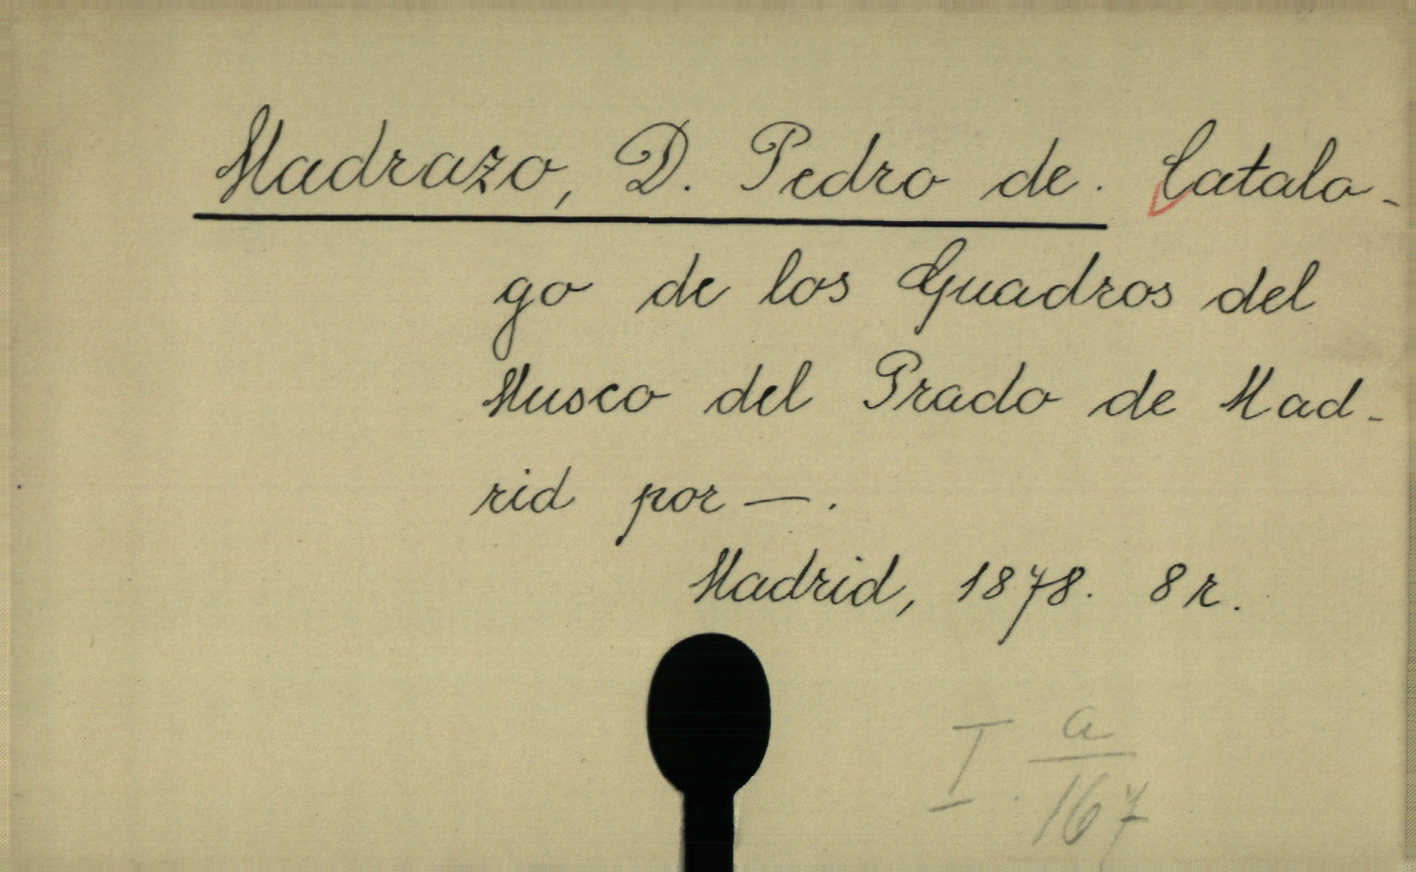 Madrazo, D. Pedro de. Catalo-
go de los Quadros del
Museo del Prado de Mad-
rid por —.
Madrid, 1878. 8r.
I. a/167